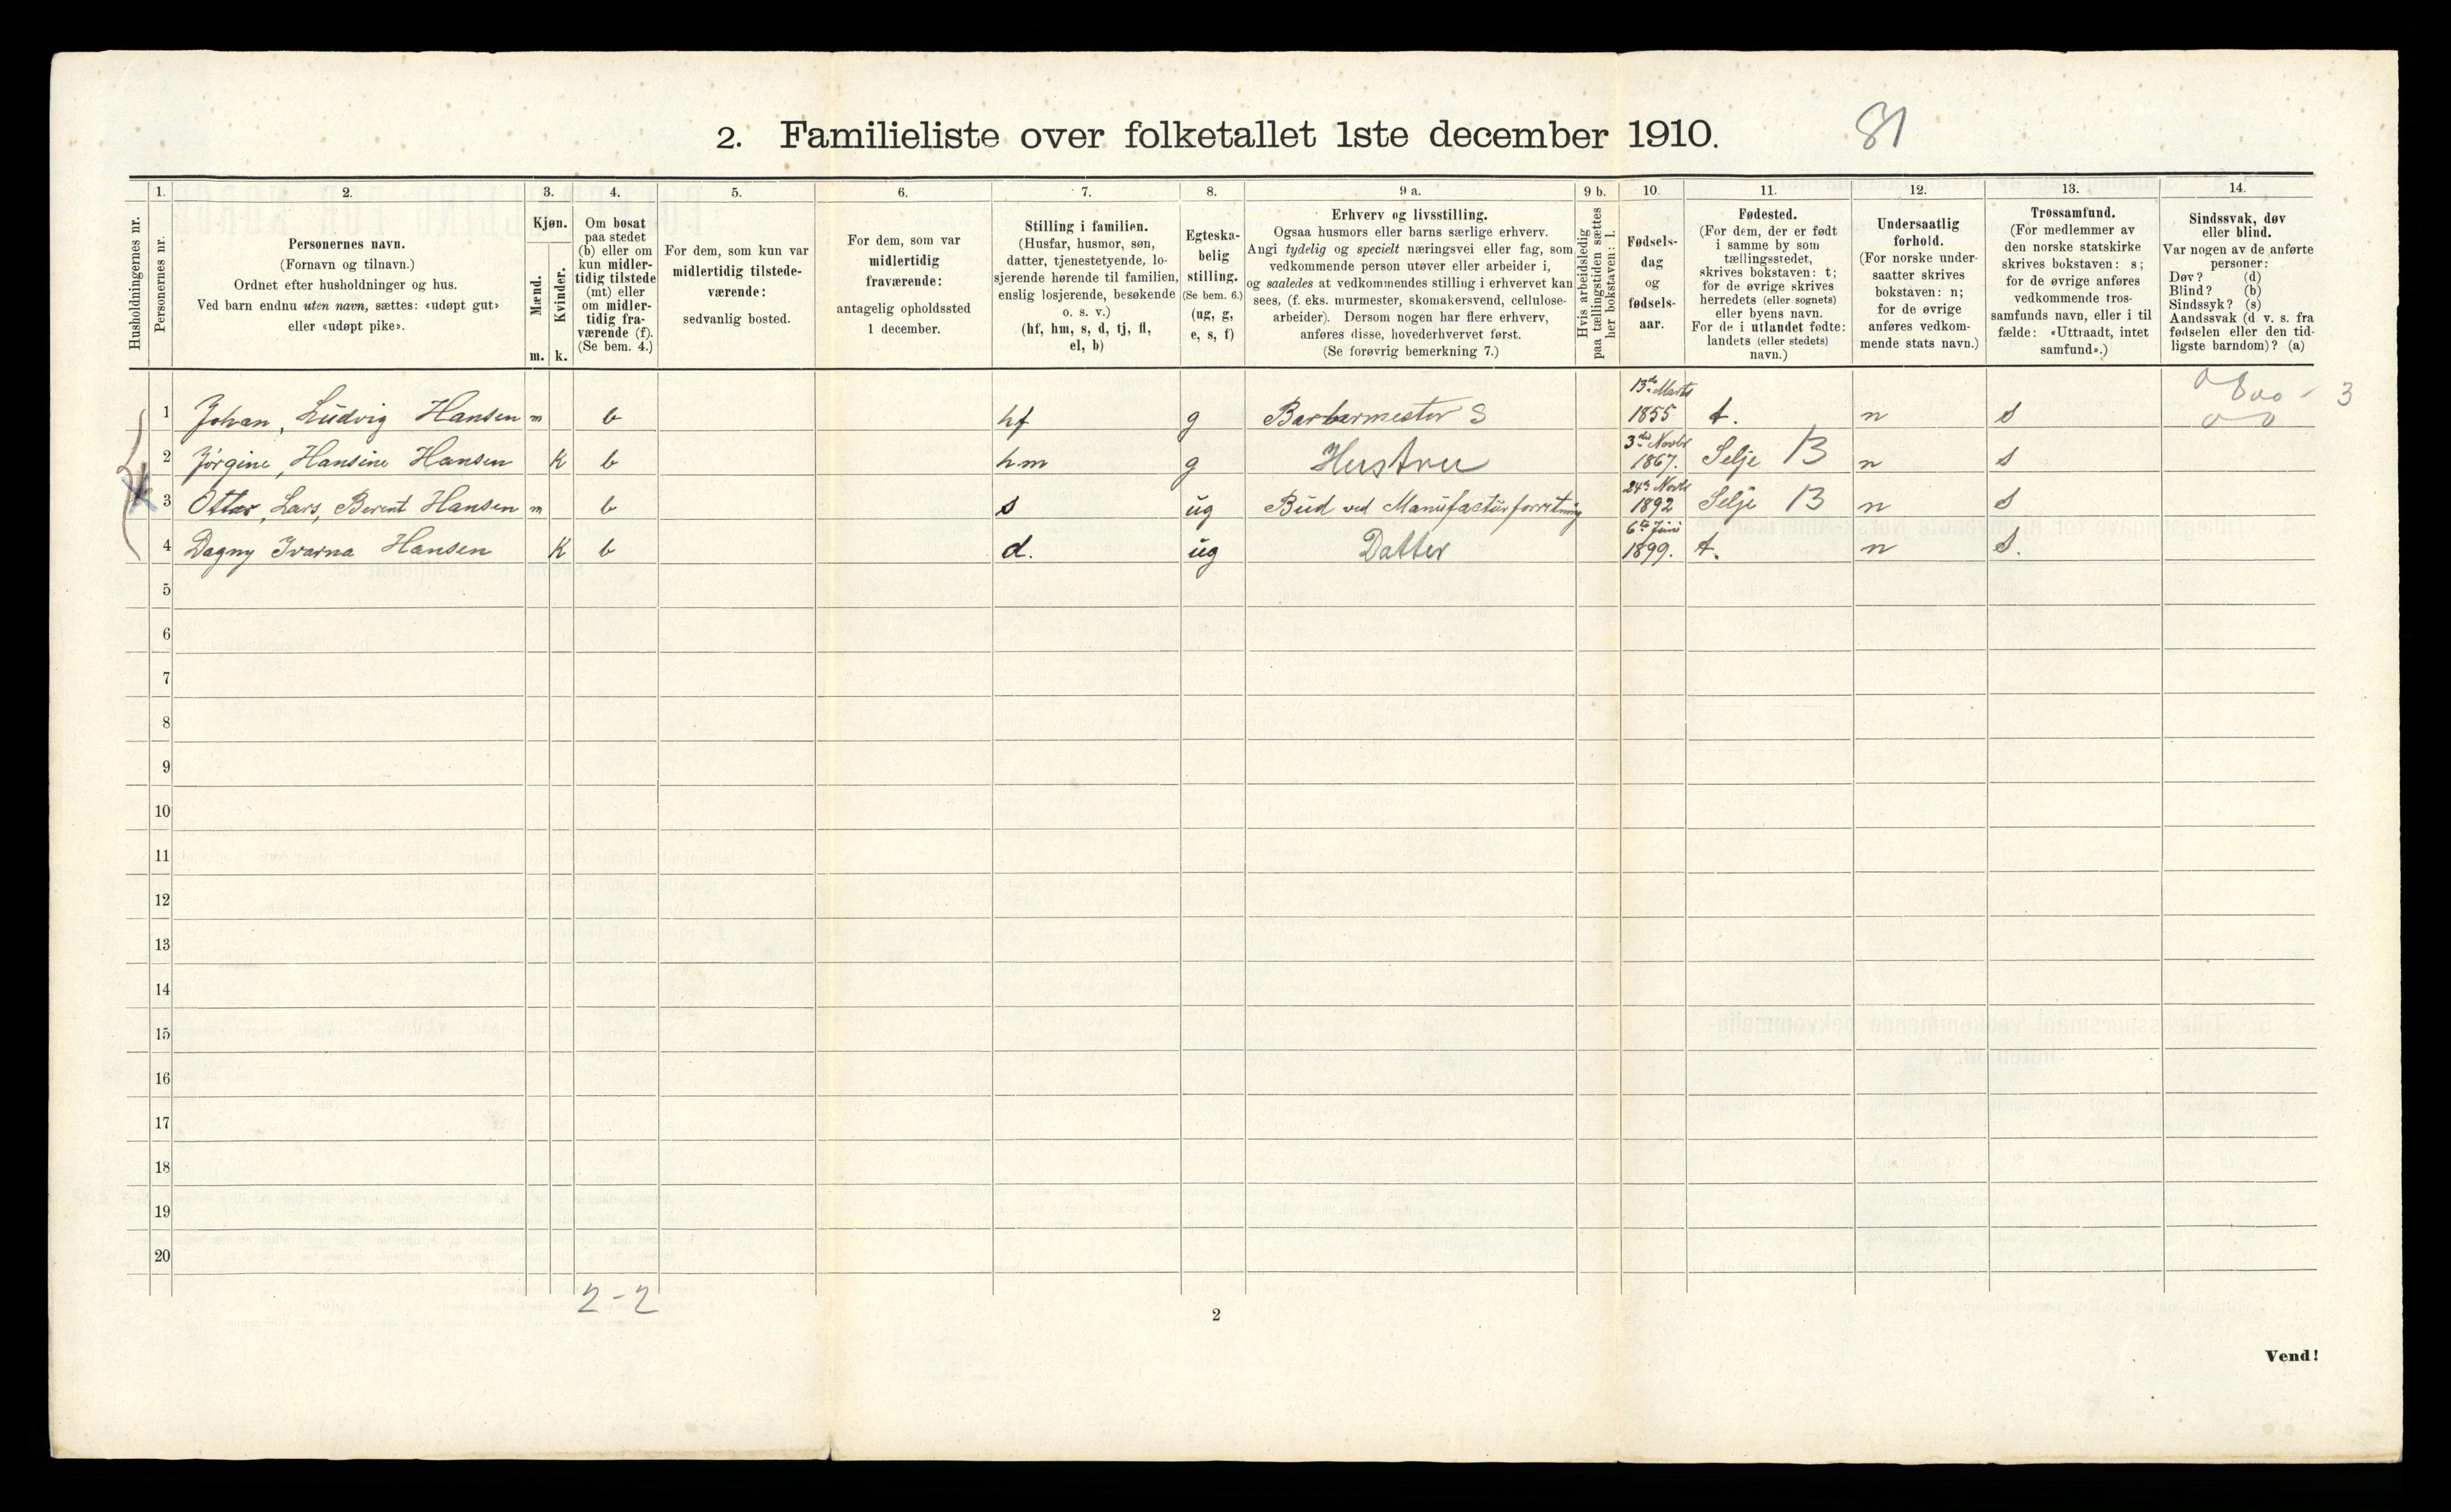 2. Familieliste over folketallet 1ste december 1910.
81
Husholdningernes nr.
1.
Personernes nr.
2.
Personernes navn.
(Fornavn og tilnavn.)
Ordnet efter husholdninger og hus.
Ved barn endnu uten navn, sættes: «udøpt gut»
eller «udøpt pike».
3.
Kjøn.
Mænd.
m.
Kvinder.
k.
4.
Om bosat
paa stedet
(b) eller om
kun midler-
tidig tilstede
(mt) eller
om midler-
tidig fra-
værende (f).
(Se bem. 4.)
5.
For dem, som kun var
midlertidig tilstede-
værende:
sedvanlig bosted.
6.
For dem, som var
midlertidig
fraværende:
antagelig opholdssted
1 december.
7.
Stilling i familien.
(Husfar, husmor, søn,
datter, tjenestetyende, lo-
sjerende hørende til familien,
enslig losjerende, besøkende
o. s. v.)
(hf, hm, s, d, tj, fl,
el, b)
8.
Egteska-
belig
stilling.
(Se bem. 6.)
(ug, g,
e, s, f)
9 a.
Erhverv og livsstilling.
Ogsaa husmors eller barns særlige erhverv.
Angi tydelig og specielt næringsvei eller fag, som
vedkommende person utøver eller arbeider i,
og saaledes at vedkommendes stilling i erhvervet kan
sees, (f. eks. murmester, skomakersvend, cellulose-
arbeider). Dersom nogen har flere erhverv,
anføres disse, hovederhvervet først.
(Se forøvrig bemerkning 7.)
9 b.
Hvis arbeidsledig
paa tællingstiden sættes
her bokstaven: l.
10.
Fødsels-
dag
og
fødsels-
aar.
11.
Fødested.
(For dem, der er født
i samme by som
tællingsstedet,
skrives bokstaven: t;
for de øvrige skrives
herredets (eller sognets)
eller byens navn.
For de i utlandet fødte:
landets (eller stedets)
navn.)
12.
Undersaatlig
forhold.
(For norske under-
saatter skrives
bokstaven: n;
for de øvrige
anføres vedkom-
mende stats navn.)
13.
Trossamfund.
(For medlemmer av
den norske statskirke
skrives bokstaven: s;
for de øvrige anføres
vedkommende tros-
samfunds navn, eller i til
fælde: «Uttraadt, intet
samfund».)
14.
Sindssvak, døv
eller blind.
Var nogen av de anførte
personer:
Døv? (d)
Blind? (b)
Sindssyk? (s)
Aandssvak (d v. s. fra
fødselen eller den tid-
ligste barndom)? (a)
1 Johan, Ludvig Hansen m b hf g Barbermester S 13de Marts 1855 t. n s
3
2 Jørgine, Hansine Hansen K b hm g Hustru 3die Novbr 1867. Selje B n s
3 Ottar, Lars, Berent Hansen m b s ug Bud ved Manufacturforretning 24de Novbr 1892 Selje B n s
4 Dagny Ivarna Hansen K b d. ug Datter 6te Juni 1899. t. n s.
5
6
7
8
9
10
11
12
13
14
15
16
17
18
19
20
2-2
2
Vend!